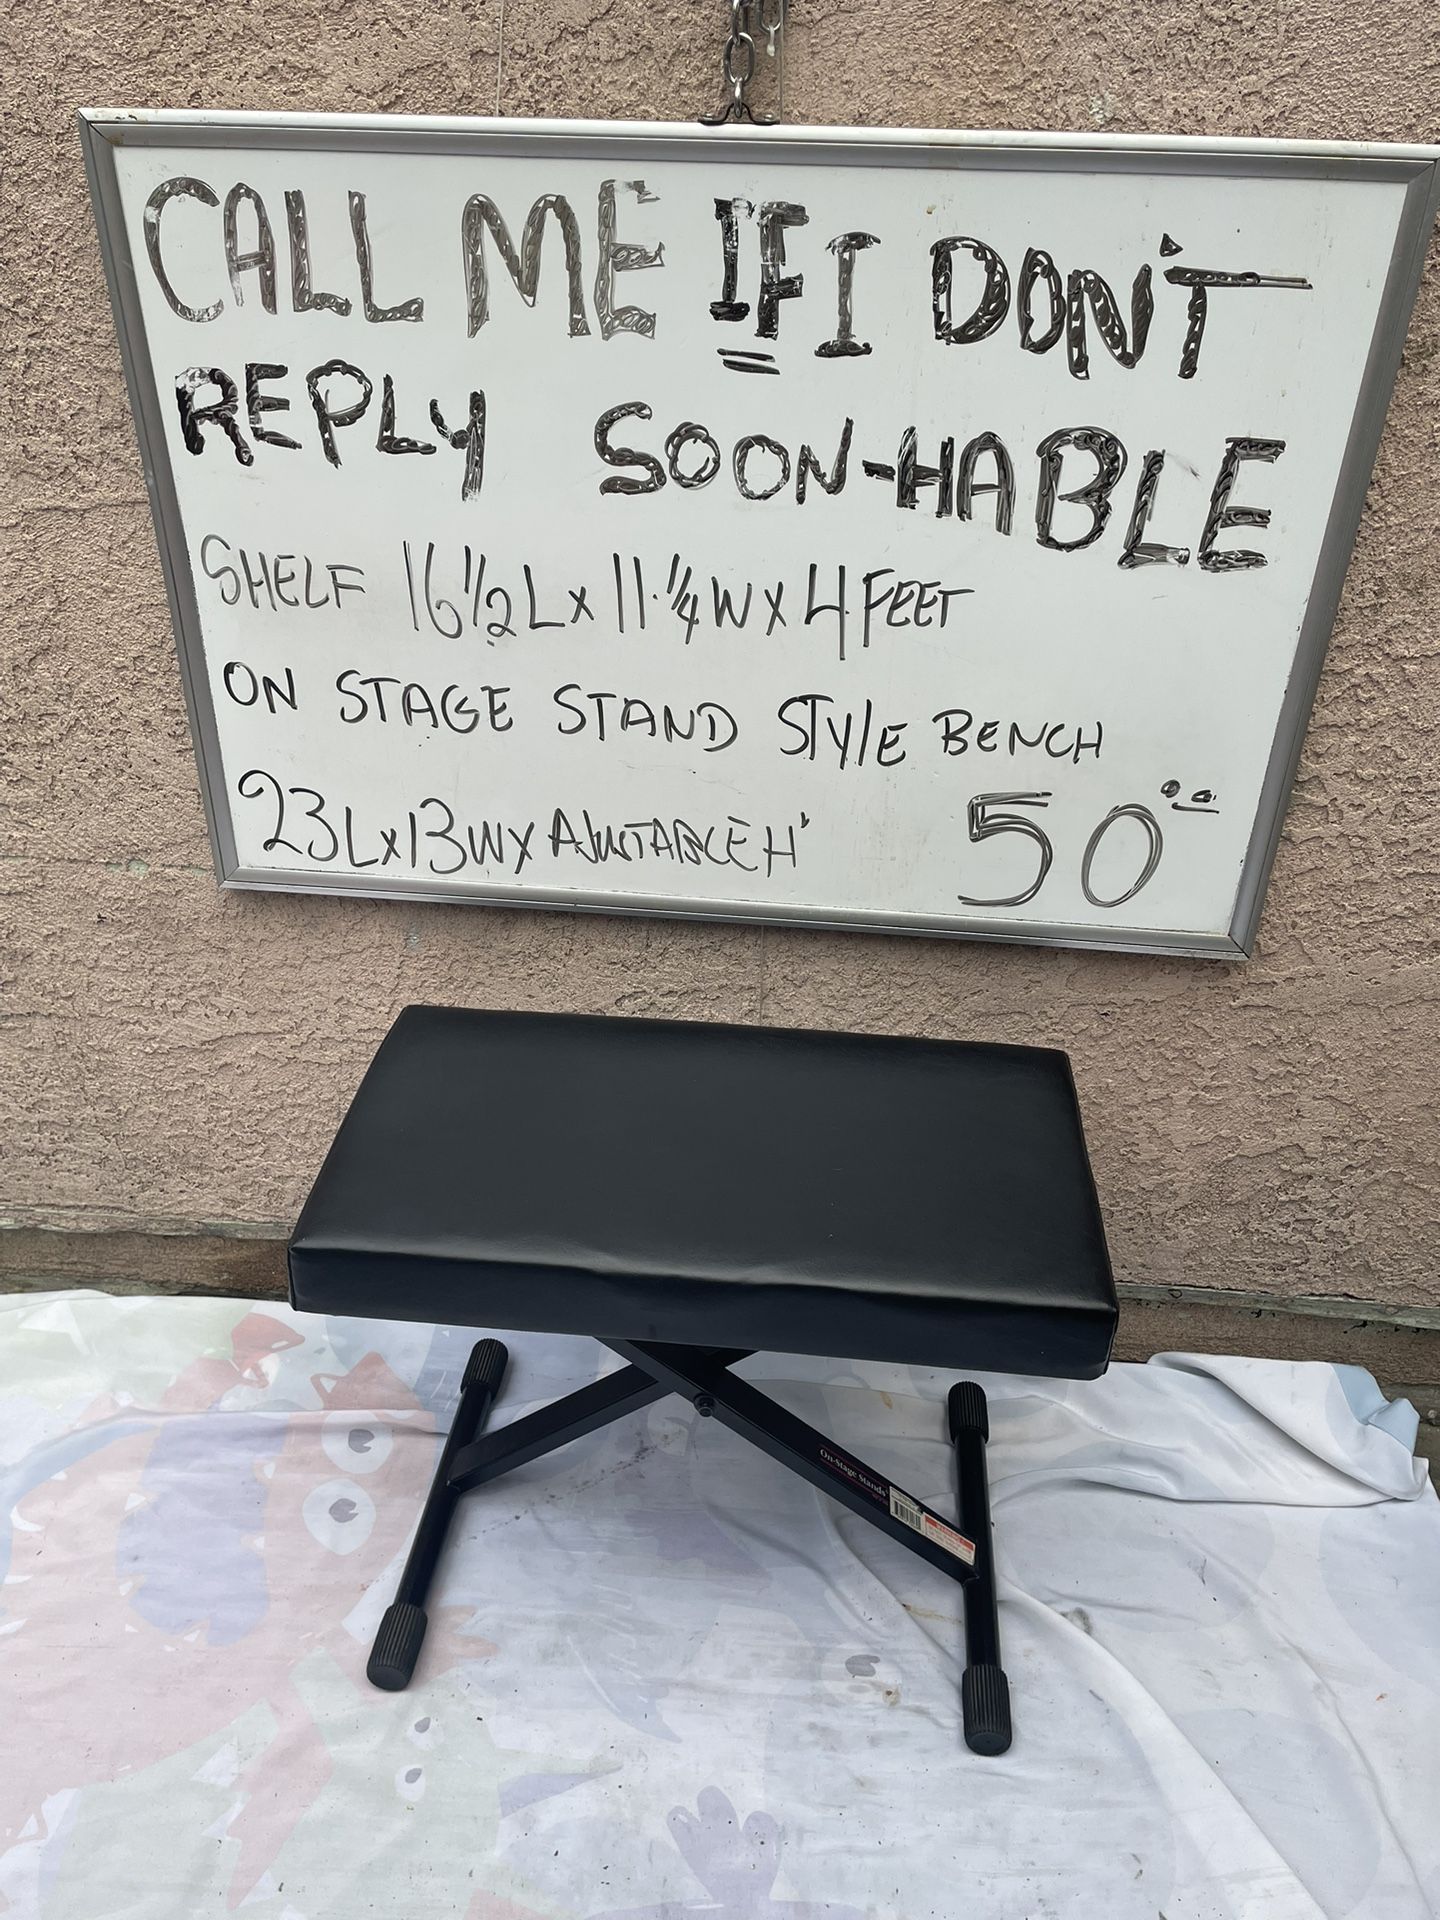 CALL ME IF I DON'T
REPLY SOON-HABLE
SHELF 16 1/2 L X 11.1/4 W X 4 FEET
ON STAGE STAND STYLE BENCH
23 L X 13 W X AJUSTABLE H'
50⁰⁰
On-Stage Stands